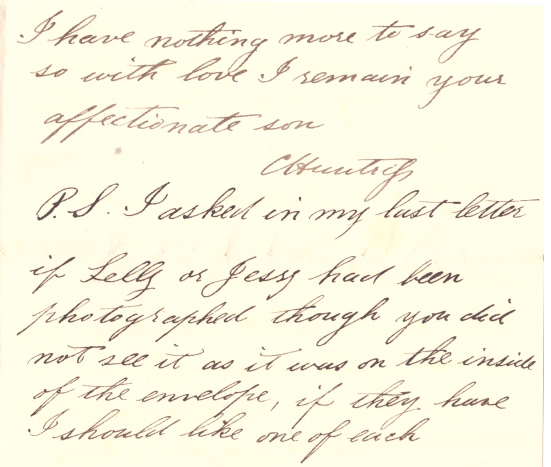 I have nothing more to say
so with love I remain your
affectionate son
CHuntress
P.S. I asked in my last letter
if Lelly or Jessy had been
photographed though you did
not see it as it was on the inside
of the envelope, if they have
I should like one of each